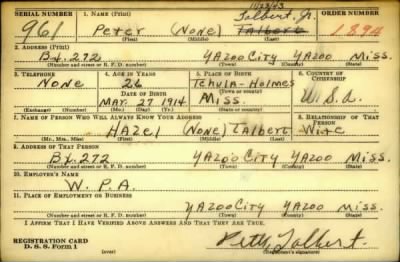 SERIAL NUMBER 1. NAME (Print) ORDER NUMBER
10/23/43
Talbert, Jr.
961 Peter (None) Talbert 1894
(First) (Middle) (Last)
2. ADDRESS (Print)
Bx. 272 YAZOO CITY YAZOO Miss.
(Number and street or R. F. D. number) (Town) (County) (State)
3. TELEPHONE 4. AGE IN YEARS 5. PLACE OF BIRTH 6. COUNTRY OF CITIZENSHIP
None 26 Tchula-Holmes
DATE OF BIRTH (Town) (County)
Mar. 27 1914 Miss. U.S.A.
(Exchange) (Number) (Mo.) (Day) (Yr.) (State or country)
7. NAME OF PERSON WHO WILL ALWAYS KNOW YOUR ADDRESS 8. RELATIONSHIP OF THAT PERSON
HAZel (None) TAlbert Wife
(Mr., Mrs., Miss) (First) (Middle) (Last)
9. ADDRESS OF THAT PERSON
Bx. 272 YAZOO CITY YAZOO Miss.
(Number and street or R. F. D. number) (Town) (County) (State)
10. EMPLOYER'S NAME
W. P. A.
11. PLACE OF EMPLOYMENT OR BUSINESS
YAZOO CITY YAZOO Miss.
(Number and street or R. F. D. number) (Town) (County) (State)
I AFFIRM THAT I HAVE VERIFIED ABOVE ANSWERS AND THAT THEY ARE TRUE.
REGISTRATION CARD
D. S. S. Form 1 (over) Talbert.
(Registrant's signature)